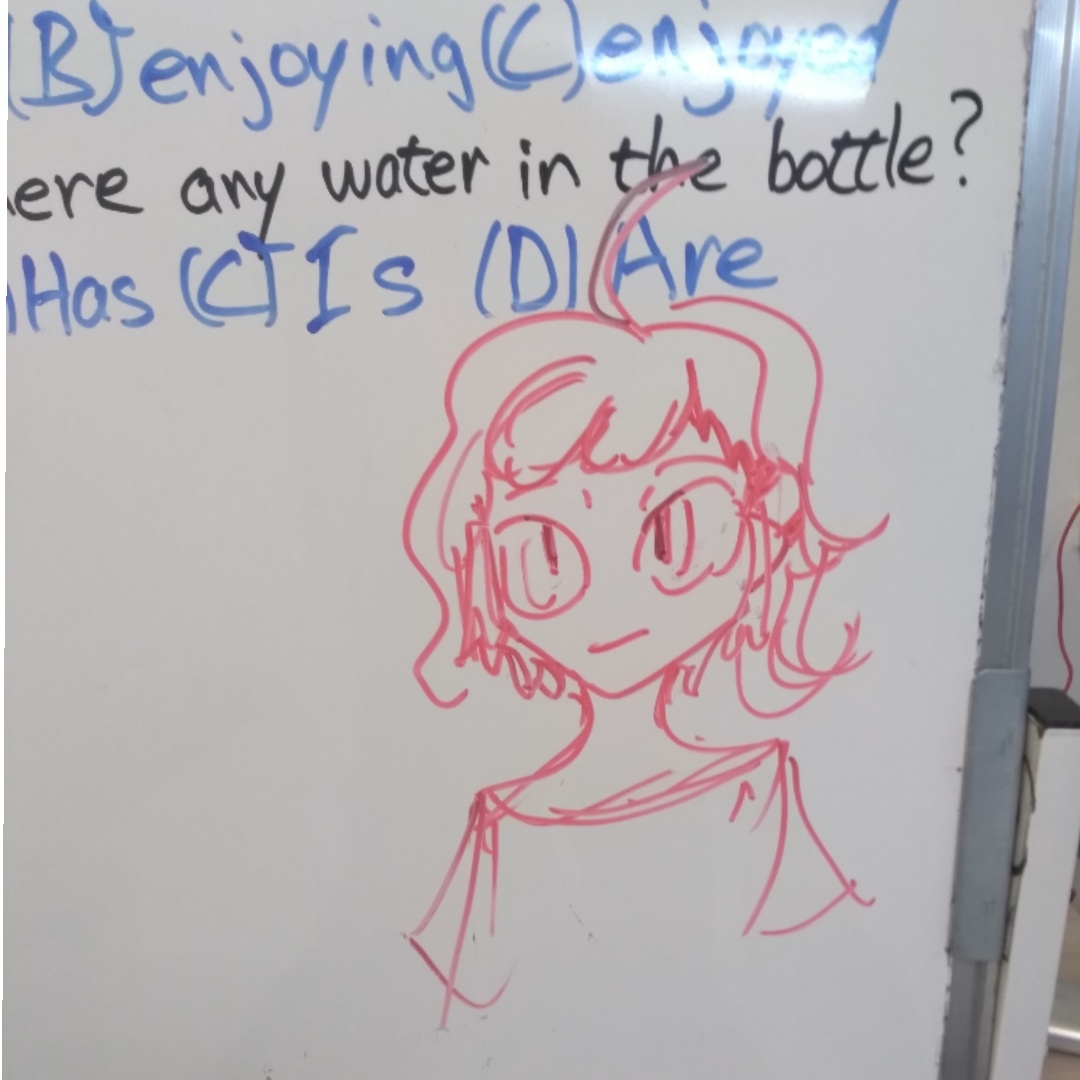 (B) enjoying (C) enjoyed
ere any water in the bottle?
Has (C) Is (D) Are